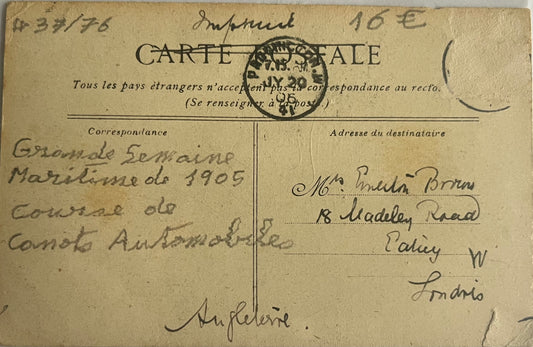 437/76
Imprimé
16 €
CARTE POSTALE
Tous les pays étrangers n'acceptent pas la correspondance au recto.
(Se renseigner à la poste.)
PADDINGTON. W
7.15
JY 20
05
41
Correspondance
Grande Semaine
Maritime de 1905
Course de
Canots Automobiles
Adresse du destinataire
Mrs Brown
18 Madeley Road
Ealing W
Londres
Angleterre.